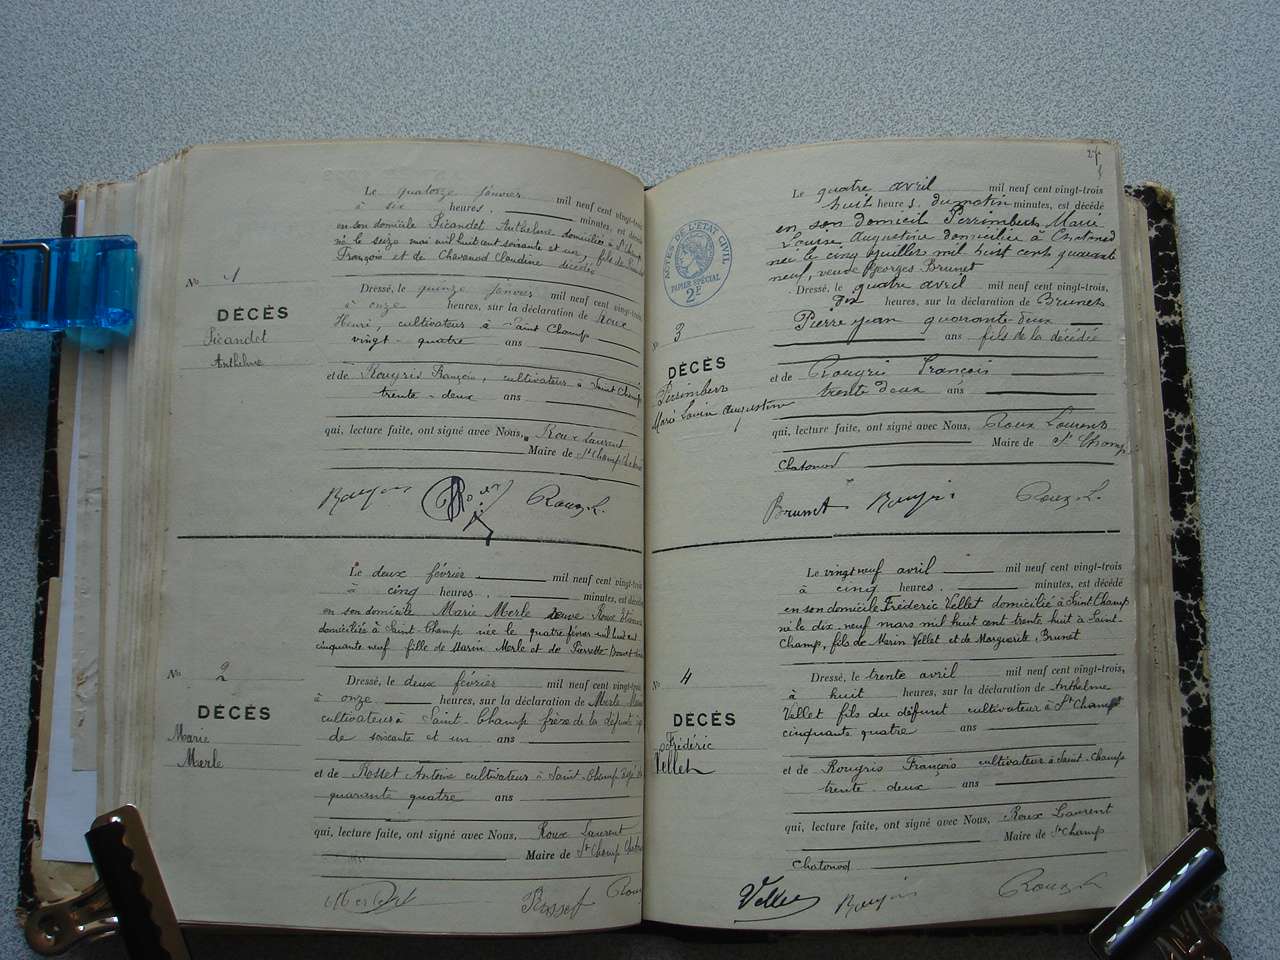 Le quatorze janvier mil neuf cent vingt-trois
à six heures, minutes, est décédé
en son domicile Picandet Anthelme domicilié à St Champ
né le seize mai mil huit cent soixante et un, fils de
François et de Chavanod Claudine décédés
No 1
DÉCÈS
Picandet
Anthelme
Dressé, le quinze janvier mil neuf cent vingt-trois,
à onze heures, sur la déclaration de Roux
Henri, cultivateur à Saint Champ
vingt-quatre ans
et de Rougris François, cultivateur à Saint Champ
trente-deux ans
qui, lecture faite, ont signé avec Nous, Roux Laurent
Maire de St Champ
Roux L.
Le deux février mil neuf cent vingt-trois
à cinq heures, minutes, est décédé
en son domicile Marie Merle veuve Roux
domiciliée à Saint-Champ née le quatre février mil huit cent
cinquante neuf fille de Marin Merle et de Pierrette
No 2
DÉCÈS
Marie
Merle
Dressé, le deux février mil neuf cent vingt-trois
à onze heures, sur la déclaration de Merle
cultivateur à Saint-Champ frère de la défunte
de soixante et un ans
et de Rosset Antoine cultivateur à Saint-Champ
quarante quatre ans
qui, lecture faite, ont signé avec Nous, Roux Laurent
Maire de St Champ
Rosset
27
Le quatre avril mil neuf cent vingt-trois
huit heures du matin minutes, est décédé
en son domicil Perrimbert Marie
Louise Augustine domiciliée à Chatonod
née le cinq juillet mil huit cent quarante
neuf, veuve Georges Brunet
ACTES DE L'ÉTAT CIVIL
PAPIER SPÉCIAL
2F
No 3
DÉCÈS
Perrimbert
Marie Louise Augustine
Dressé, le quatre avril mil neuf cent vingt-trois,
Dix heures, sur la déclaration de Brunet
Pierre jean quarante-deux
ans fils de la décédée
et de Rougris François
trente deux ans
qui, lecture faite, ont signé avec Nous, Roux Laurent
Maire de St Champ
Chatonod
Brunet Rougris Roux L.
Le vingt neuf avril mil neuf cent vingt-trois
à cinq heures, minutes, est décédé
en son domicile Fréderic Vellet domicilié à Saint-Champ
né le dix-neuf mars mil huit cent trente huit à Saint-
Champ, fils de Marin Vellet et de Marguerite Brunet
No 4
DÉCÈS
Frédéric
Vellet
Dressé, le trente avril mil neuf cent vingt-trois,
à huit heures, sur la déclaration de Anthelme
Vellet fils du défunt cultivateur à St Champ
cinquante quatre ans
et de Rougris François cultivateur à Saint-Champ
trente-deux ans
qui, lecture faite, ont signé avec Nous, Roux Laurent
Maire de St Champ
Chatonod
Vellet Rougris Roux L.